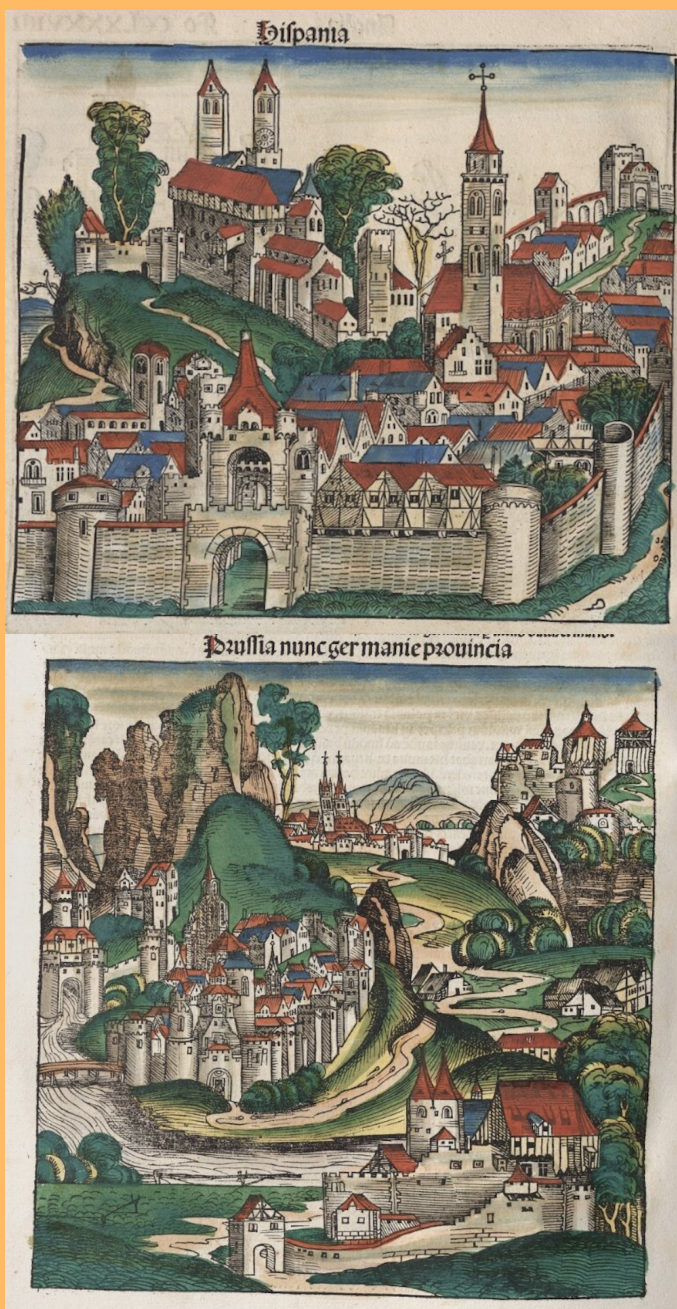 Hispania
Prussia nunc germanie prouincia